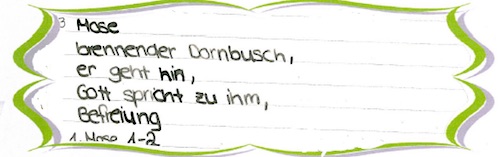 3 Mose
brennender Dornbusch,
er geht hin,
Gott spricht zu ihm,
Befreiung
1. Mose 1-2